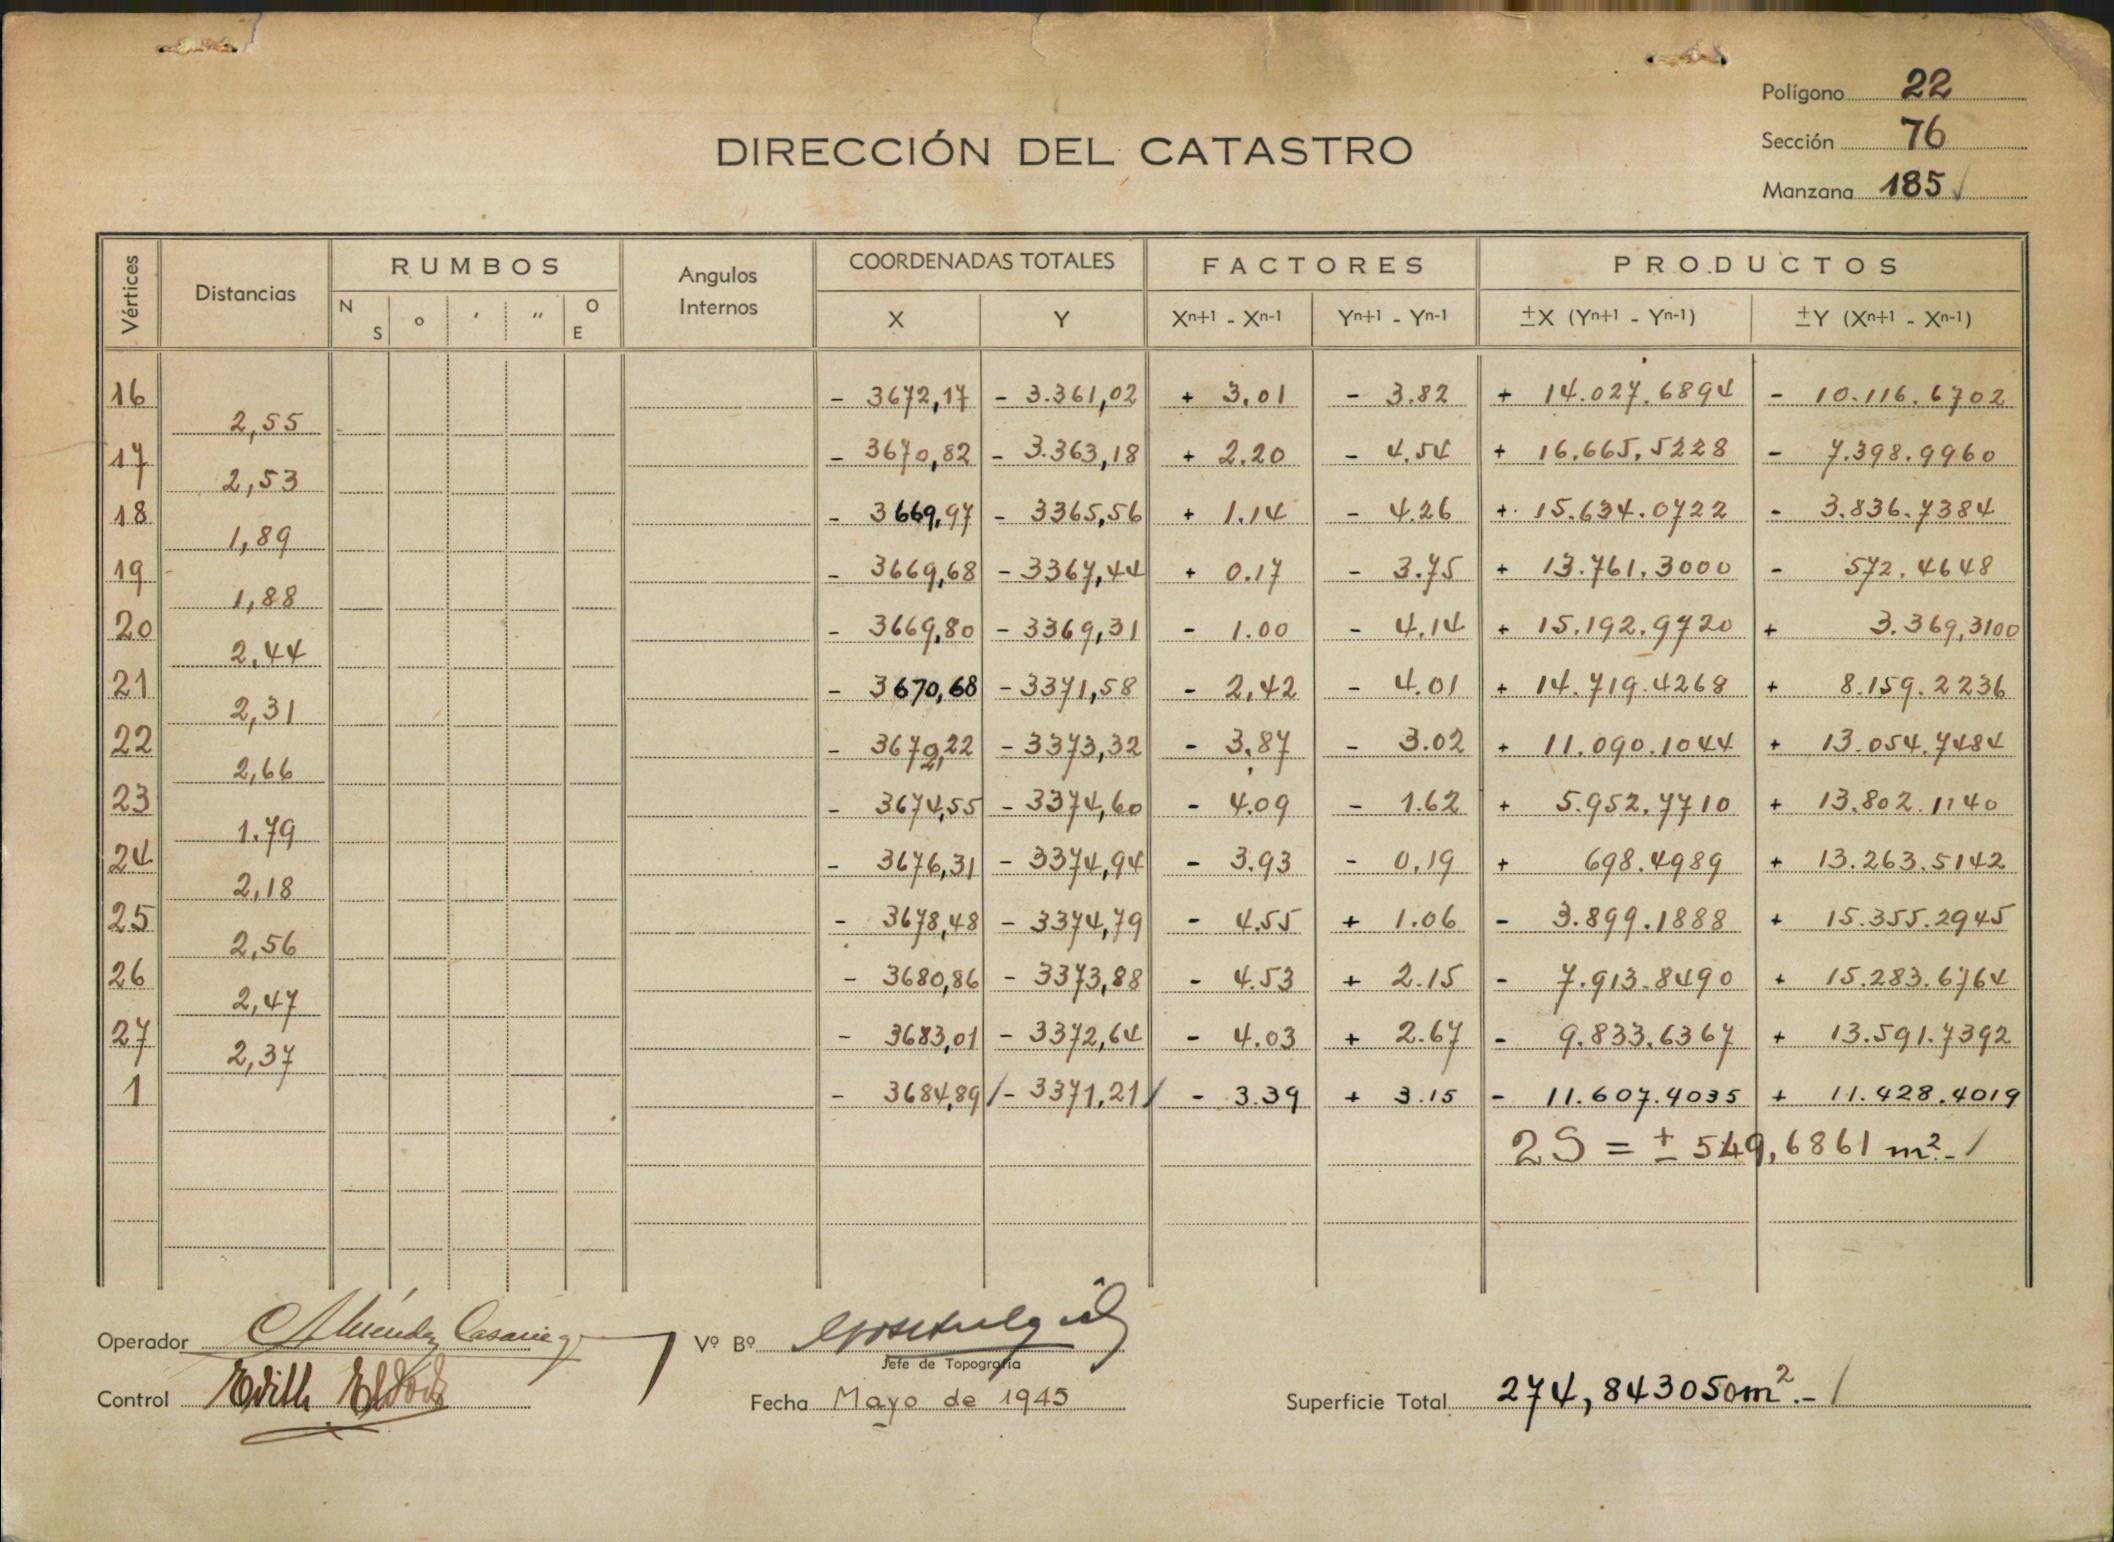 Polígono 22
DIRECCIÓN DEL CATASTRO
Sección 76
Manzana 185
Vértices Distancias RUMBOS Angulos Internos COORDENADAS TOTALES FACTORES PRODUCTOS
N S o ' " O E X Y Xn+1 - Xn-1 Yn+1 - Yn-1 ±X (Yn+1 - Yn-1) ±Y (Xn+1 - Xn-1)
16 - 3672,17 - 3.361,02 + 3.01 - 3.82 + 14.027.6894 - 10.116.6702
2,55
17 - 3670,82 - 3.363,18 + 2.20 - 4.54 + 16.665.5228 - 7.398.9960
2,53
18 - 3669,97 - 3365,56 + 1.14 - 4.26 + 15.634.0722 - 3.836.7384
1,89
19 - 3669,68 - 3367,44 + 0.17 - 3.75 + 13.761.3000 - 572.4648
1,88
20 - 3669,80 - 3369,31 - 1.00 - 4.14 + 15.192.9720 + 3.369,3100
2,44
21 - 3670,68 - 3371,58 - 2,42 - 4.01 + 14.719.4268 + 8.159.2236
2,31
22 - 3672,22 - 3373,32 - 3.87 - 3.02 + 11.090.1044 + 13.054.7484
2,66
23 - 3674,55 - 3374,60 - 4.09 - 1.62 + 5.952.7710 + 13.802.1140
1.79
24 - 3676,31 - 3374,94 - 3.93 - 0,19 + 698.4989 + 13.263.5142
2,18
25 - 3678,48 - 3374,79 - 4.55 + 1.06 - 3.899.1888 + 15.355.2945
2,56
26 - 3680,86 - 3373,88 - 4.53 + 2.15 - 7.913.8490 + 15.283.6764
2,47
27 - 3683,01 - 3372,64 - 4.03 + 2.67 - 9.833.6367 + 13.591.7392
2,37
1 - 3684,89 - 3371,21 - 3.39 + 3.15 - 11.607.4035 + 11.428.4019
2S = ± 549,6861 m².-
Operador
Vº Bº
Jefe de Topografía
Control Edith
Fecha Mayo de 1945
Superficie Total 274,843050m².-